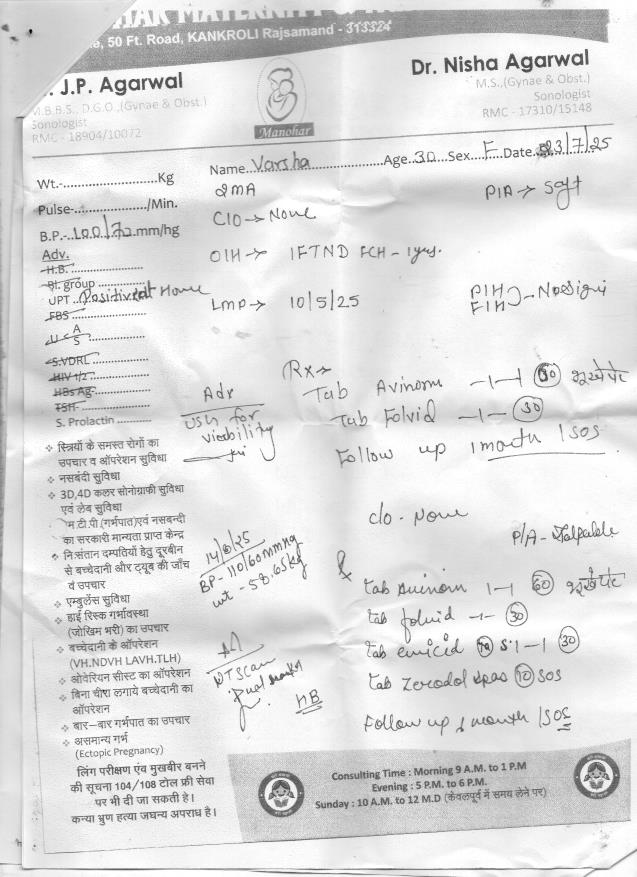 MATERNITY
50 Ft. Road, KANKROLI Rajsamand - 313324
J.P. Agarwal
M.B.B.S., D.G.O.,(Gynae & Obst.)
Sonologist
RMC - 18904/10072
Manohar
Dr. Nisha Agarwal
M.S.,(Gynae & Obst.)
Sonologist
RMC - 17310/15148
Name Varsha Age 30 Sex F Date 23/7/25
Wt.- Kg
Pulse- /Min.
B.P.- 100/72 mm/hg
Adv.
H.B.
Bl. group
UPT Positive at Home
FBS
U < A
S
S.VDRL
HIV 1/2
HBs Ag
TSH
S. Prolactin
2MA
P/A → Soft
C/O → None
O/H → 1FTND FCH - 1 yrs.
LMP → 10/5/25
P/H
F/H } - No
Rx →
Adv
USG for
viability
Tab 1-1 60 भूखे पेट
Tab Folvid -1- 30
Follow up 1 month / SOS
❖ स्त्रियों के समस्त रोगों का
उपचार व ऑपरेशन सुविधा
❖ नसबंदी सुविधा
❖ 3D,4D कलर सोनोग्राफी सुविधा
एवं लेब सुविधा
एम.टी.पी.(गर्भपात)एवं नसबन्दी
का सरकारी मान्यता प्राप्त केन्द्र
❖ नि:संतान दम्पतियों हेतु दूरबीन
से बच्चेदानी और ट्यूब की जाँच
व उपचार
❖ एम्बुलेंस सुविधा
❖ हाई रिस्क गर्भावस्था
(जोखिम भरी) का उपचार
❖ बच्चेदानी के ऑपरेशन
(VH.NDVH LAVH.TLH)
❖ ओवेरियन सीस्ट का ऑपरेशन
❖ बिना चीरा लगाये बच्चेदानी का
ऑपरेशन
❖ बार-बार गर्भपात का उपचार
❖ असमान्य गर्भ
(Ectopic Pregnancy)
c/o - None
P/A - Palpable
BP - 110/60 mmHg
wt - 58.65kg
tab 1-1 60 भूखे पेट
tab folvid -1- 30
NT Scan
HB
tab 1-1 30
tab zerodol spas 10 SOS
Follow up 1 month / SOS
लिंग परीक्षण एंव मुखबीर बनने
की सूचना 104/108 टोल फ्री सेवा
पर भी दी जा सकती है।
कन्या भ्रुण हत्या जघन्य अपराध है।
Consulting Time : Morning 9 A.M. to 1 P.M
Evening : 5 P.M. to 6 P.M.
Sunday : 10 A.M. to 12 M.D (केवलपूर्व में समय लेने पर)